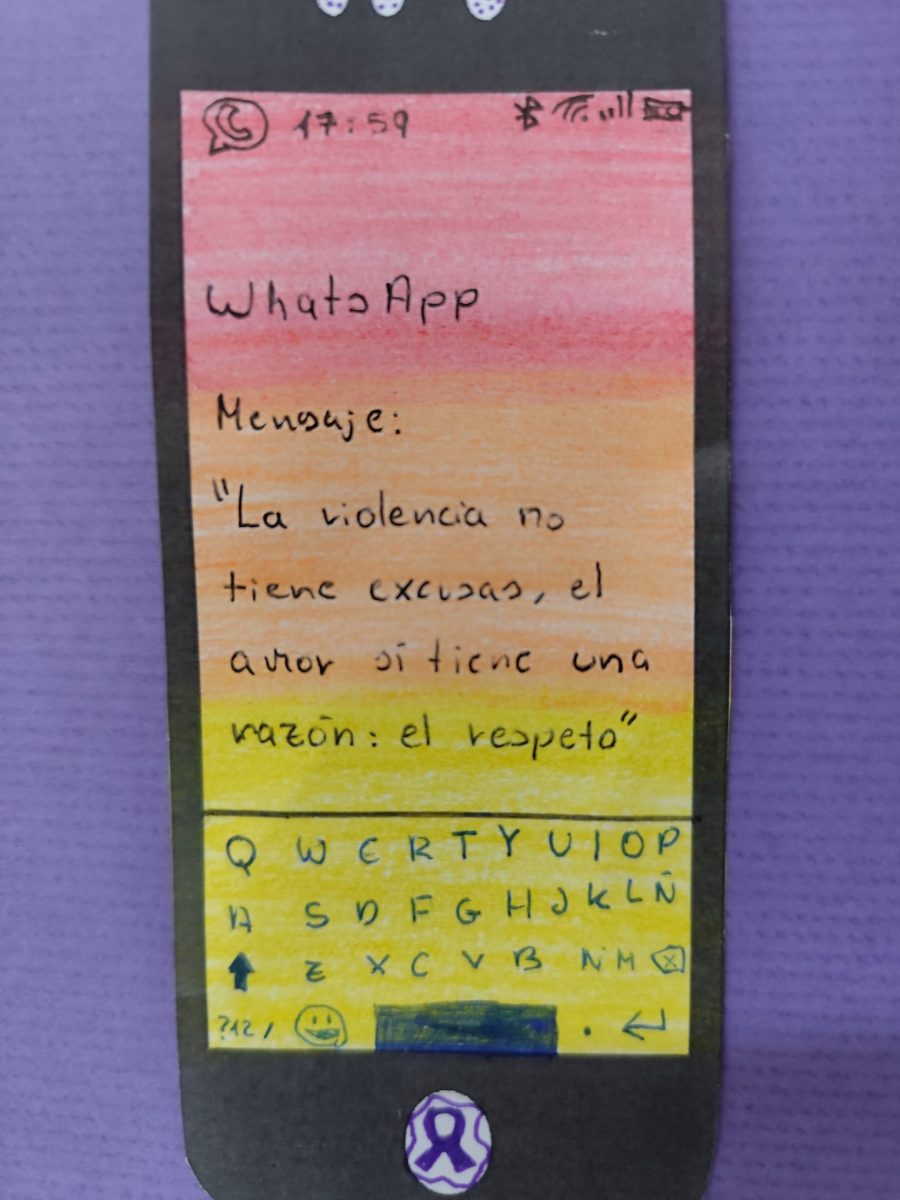 17:59
WhatsApp
Mensaje:
"La violencia no
tiene excusas, el
amor sí tiene una
razón: el respeto"
Q W E R T Y U I O P
A S D F G H J K L Ñ
Z X C V B N M
?12/ .